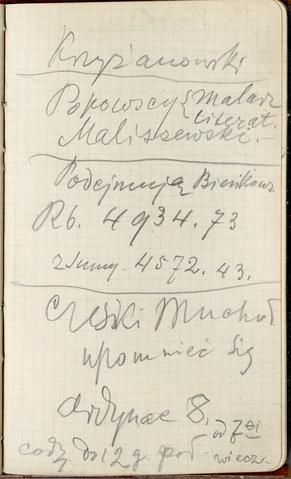 Krzyżanowski
Popowscy { Malarz
Literat.
Maliszewski. –
Podejmują Bieńkows.
Rb. 4934.73
z Sumy. 4572.43.
Czeski
upomnieć się
Ordynac 8. od 7 ei
do 12 g. poł. wiecz.